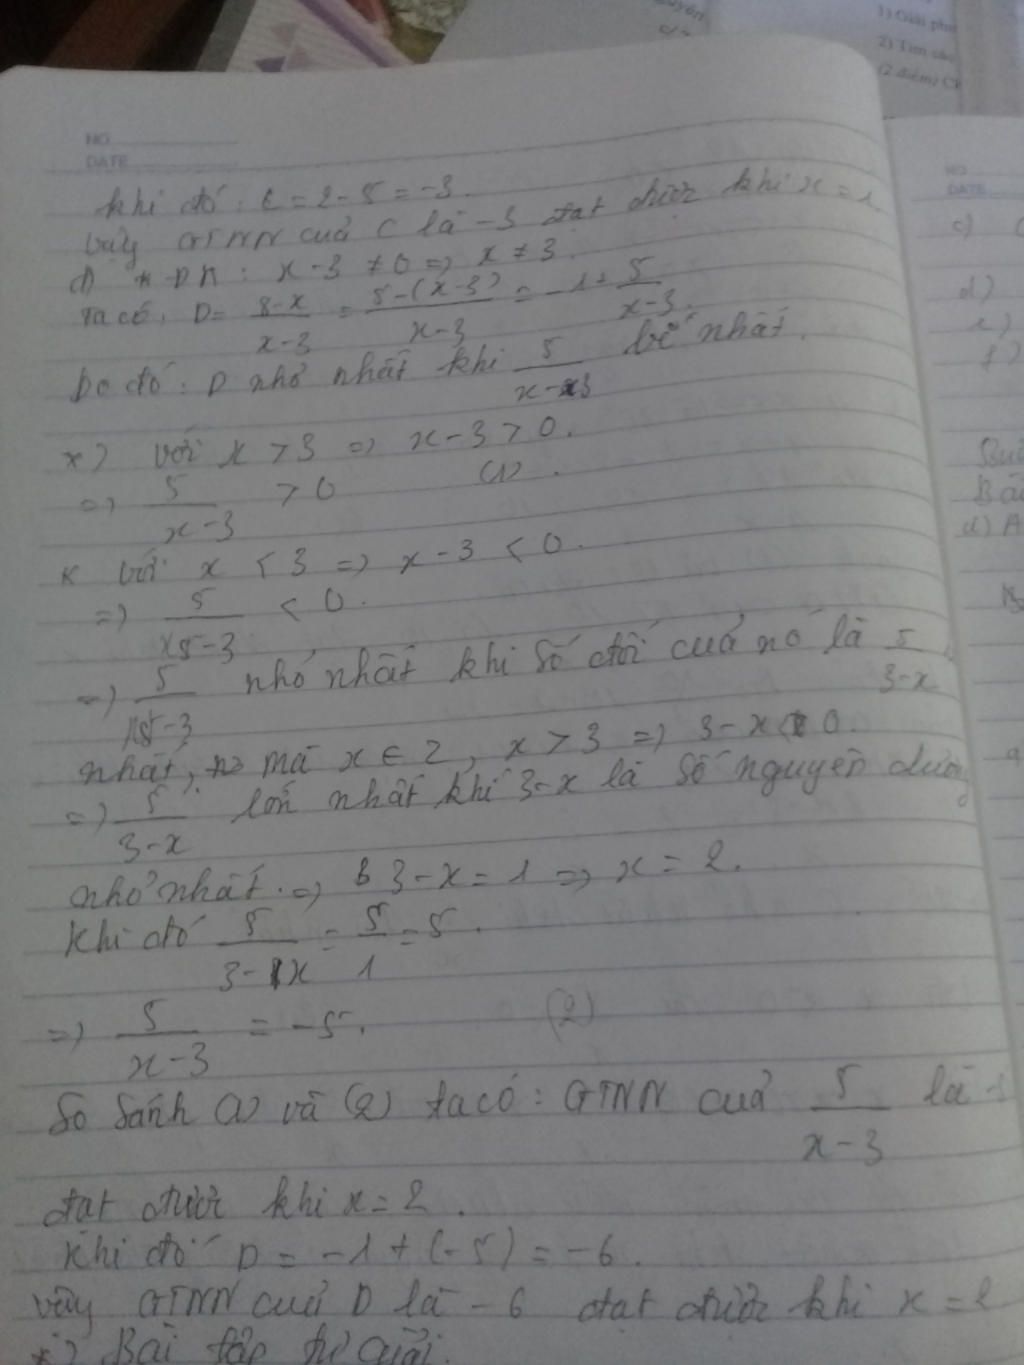 1) Giải
2) Tìm
(2 điểm)
NO
DATE
Khi đó: C = 2 - 5 = -3.
Vậy GTNN của C là -3 đạt được khi x = 1.
d) * ĐK: x - 3 ≠ 0 => x ≠ 3.
Ta có: D = 8-x/x-3 = 5-(x-3)/x-3 = -1 + 5/x-3.
Do đó: D nhỏ nhất khi 5/x-3 bé nhất.
*) Với x > 3 => x - 3 > 0.
=> 5/x-3 > 0 (1).
* Với x < 3 => x - 3 < 0.
=> 5/x-3 < 0.
=> 5/x-3 nhỏ nhất khi số đối của nó là 5/3-x
nhất, mà x ∈ Z, x > 3 => 3 - x 0.
=> 5/3-x lớn nhất khi 3-x là số nguyên dương
nhỏ nhất. => 3-x = 1 => x = 2.
Khi đó 5/3-x = 5/1 = 5.
=> 5/x-3 = -5. (2)
So sánh (1) và (2) ta có: GTNN của 5/x-3 là -5
đạt được khi x = 2.
Khi đó D = -1 + (-5) = -6.
Vậy GTNN của D là -6 đạt được khi x = 2
*) Bài tập tự giải.
NO
DATE
c)
d)
e)
f)
Bài
d) A